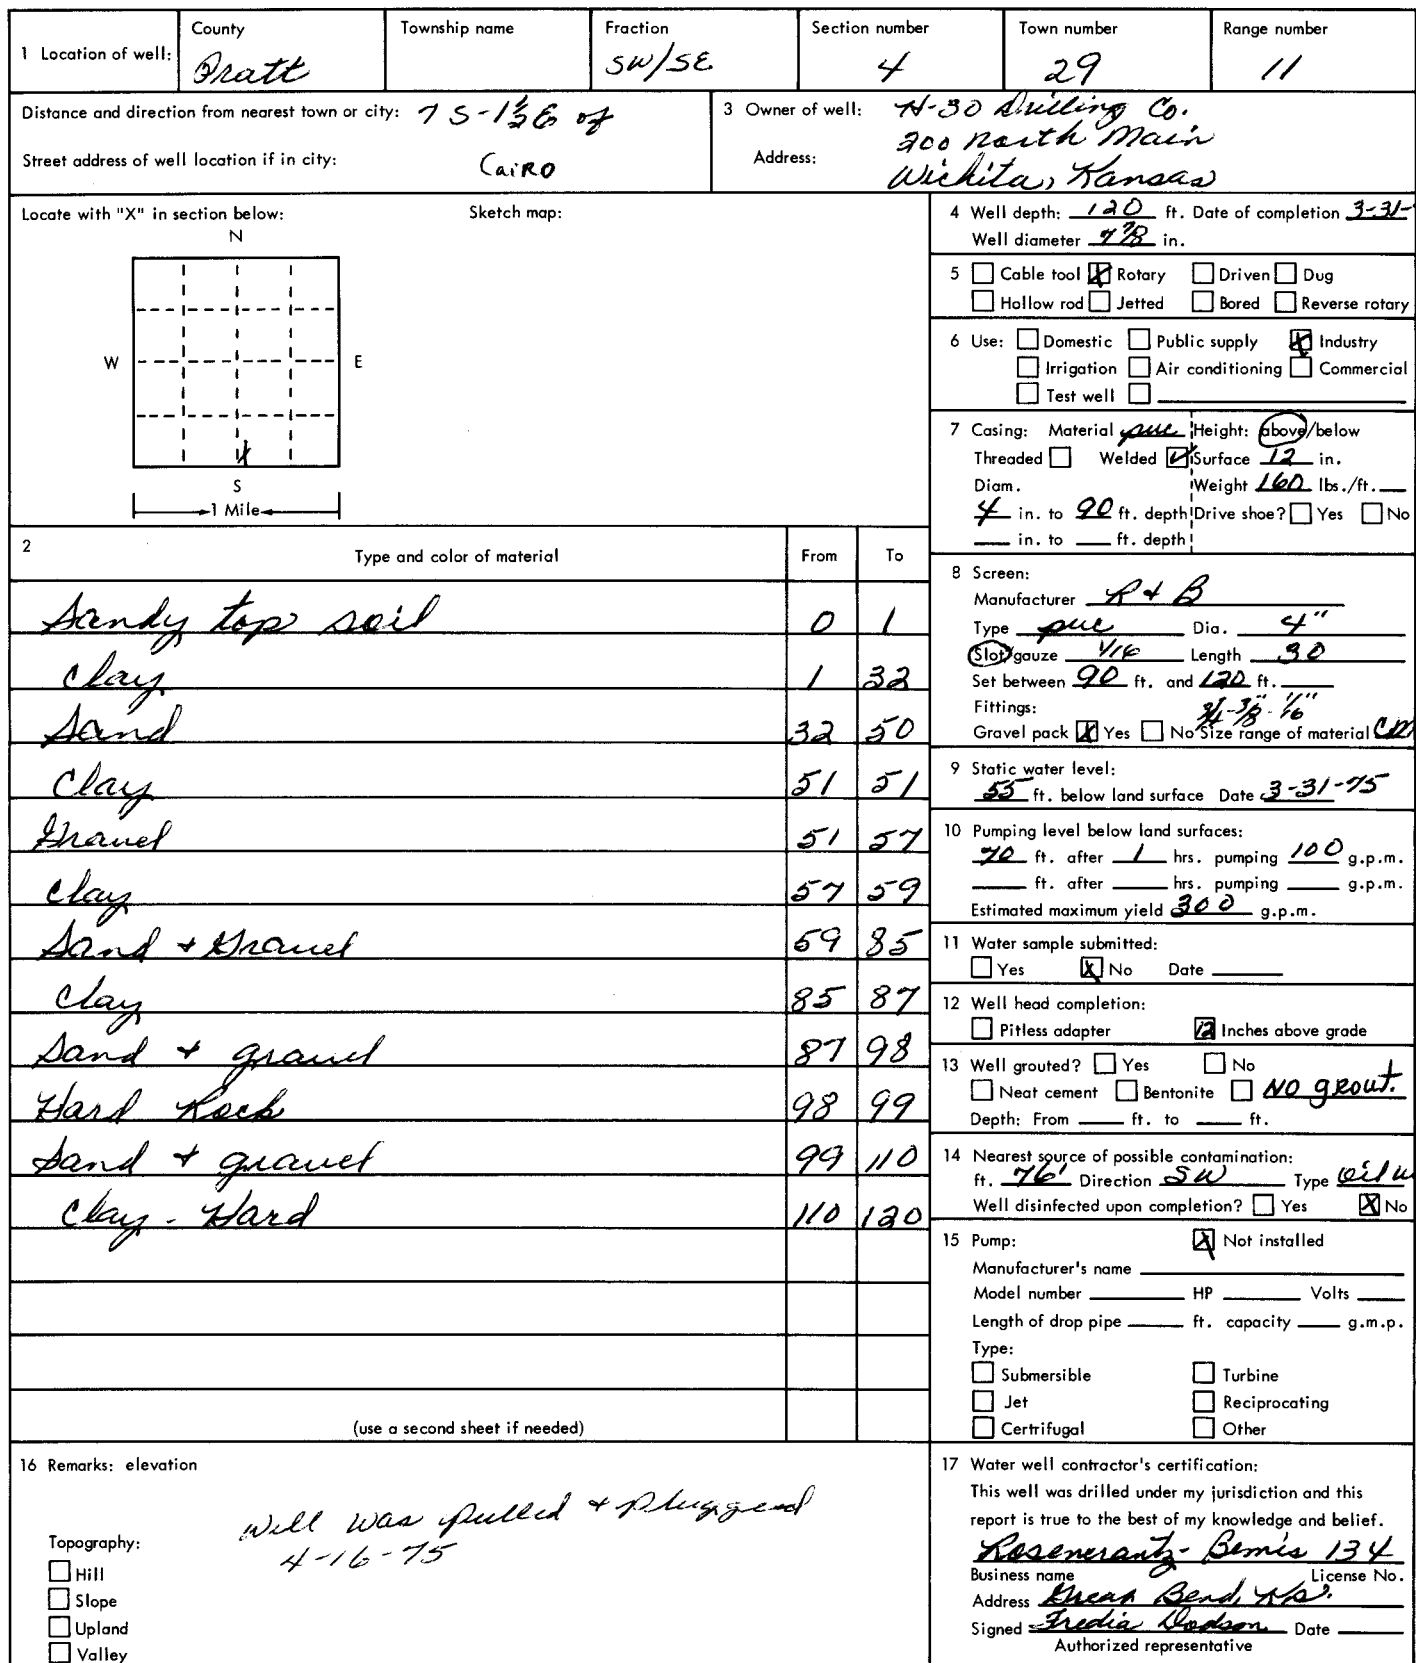 1 Location of well: County Pratt Township name Fraction SW/SE Section number 4 Town number 29 Range number 11
Distance and direction from nearest town or city: 7 S-1½ E of
Street address of well location if in city: CaiRO
3 Owner of well: H-30 Drilling Co.
Address: 200 North Main
Wichita, Kansas
Locate with "X" in section below: Sketch map:
N
W E
X
S
1 Mile
2 Type and color of material From To
Sandy top soil 0 1
Clay 1 32
Sand 32 50
Clay 51 51
Gravel 51 57
Clay 57 59
Sand + Gravel 59 85
Clay 85 87
Sand + gravel 87 98
Hard Rock 98 99
Sand + gravel 99 110
Clay - Hard 110 120
(use a second sheet if needed)
4 Well depth: 120 ft. Date of completion 3-31-
Well diameter 7 7/8 in.
5 Cable tool X Rotary Driven Dug
Hollow rod Jetted Bored Reverse rotary
6 Use: Domestic Public supply X Industry
Irrigation Air conditioning Commercial
Test well
7 Casing: Material pvc Height: above/below
Threaded Welded ✓ Surface 12 in.
Diam. Weight 160 lbs./ft.
4 in. to 90 ft. depth Drive shoe? Yes No
in. to ft. depth
8 Screen:
Manufacturer R + B
Type pvc Dia. 4"
Slot/gauze 1/16 Length 30
Set between 90 ft. and 120 ft.
Fittings: 3/4-3/8"-1/16"
Gravel pack X Yes No Size range of material
9 Static water level:
55 ft. below land surface Date 3-31-75
10 Pumping level below land surfaces:
70 ft. after 1 hrs. pumping 100 g.p.m.
ft. after hrs. pumping g.p.m.
Estimated maximum yield 300 g.p.m.
11 Water sample submitted:
Yes X No Date
12 Well head completion:
Pitless adapter 12 Inches above grade
13 Well grouted? Yes No
Neat cement Bentonite NO grout.
Depth: From ft. to ft.
14 Nearest source of possible contamination:
ft. 76' Direction SW Type oil w
Well disinfected upon completion? Yes X No
15 Pump: X Not installed
Manufacturer's name
Model number HP Volts
Length of drop pipe ft. capacity g.m.p.
Type:
Submersible Turbine
Jet Reciprocating
Certrifugal Other
16 Remarks: elevation
Well was pulled + Pluggeed
4-16-75
Topography:
Hill
Slope
Upland
Valley
17 Water well contractor's certification:
This well was drilled under my jurisdiction and this
report is true to the best of my knowledge and belief.
Rosencrantz-Bemis 134
Business name License No.
Address Great Bend, Ks.
Signed Fredia Dodson Date
Authorized representative